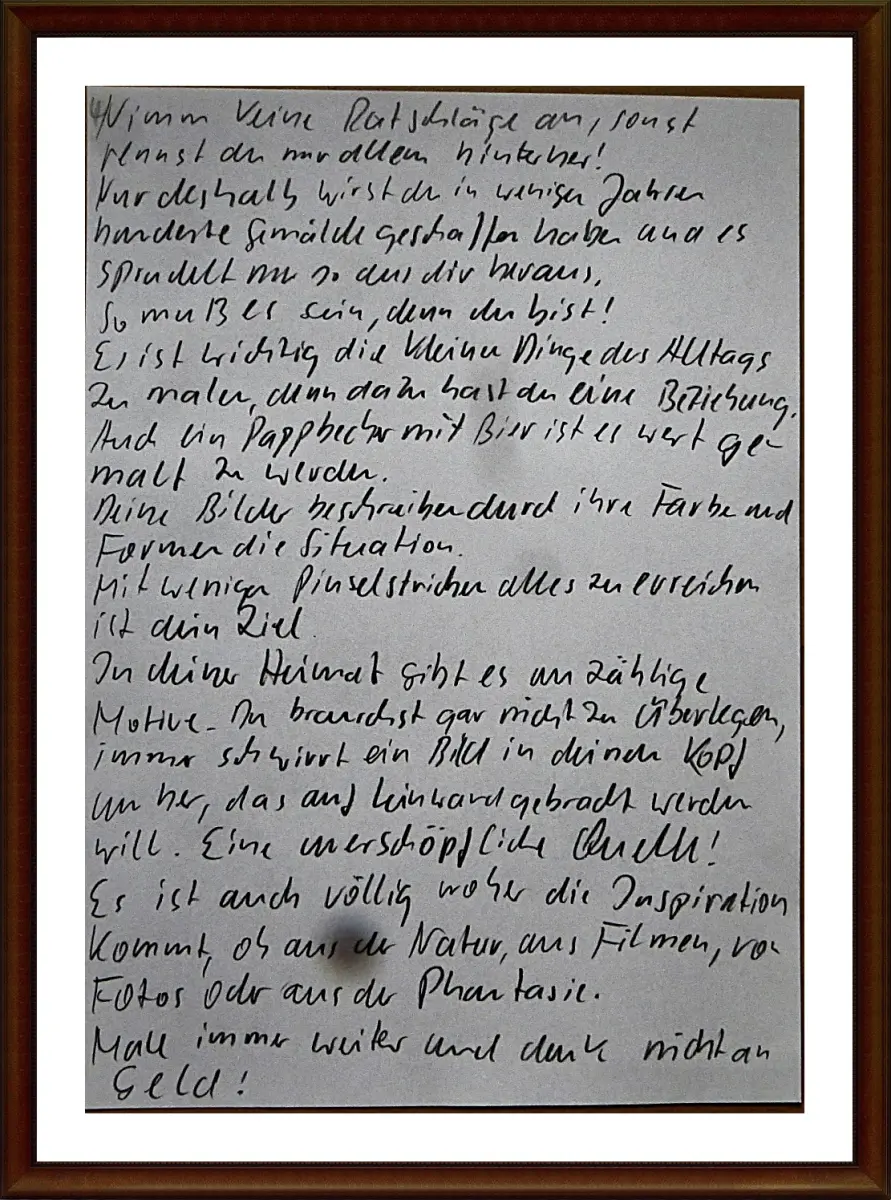 4/Nimm keine Ratschläge an, sonst
rennst du nur allem hinterher!
Nur deshalb wirst du in wenigen Jahren
hunderte Gemälde geschaffen haben und es
sprudelt nur so aus dir heraus.
So muß es sein, denn du bist!
Es ist wichtig die kleinen Dinge des Alltags
zu malen, denn dazu hast du eine Beziehung.
Auch ein Pappbecher mit Bier ist es wert ge-
malt zu werden.
Deine Bilder beschreiben durch ihre Farbe und
Formen die Situation.
Mit wenigen Pinselstrichen alles zu erreichen
ist dein Ziel.
In deiner Heimat gibt es unzählige
Motive. Du brauchst gar nicht zu überlegen,
immer schwirrt ein Bild in deinem Kopf
umher, das auf Leinwand gebracht werden
will. Eine unerschöpfliche Quelle!
Es ist auch völlig woher die Inspiration
kommt, ob aus der Natur, aus Filmen, von
Fotos oder aus der Phantasie.
Male immer weiter und denk nicht an
Geld!